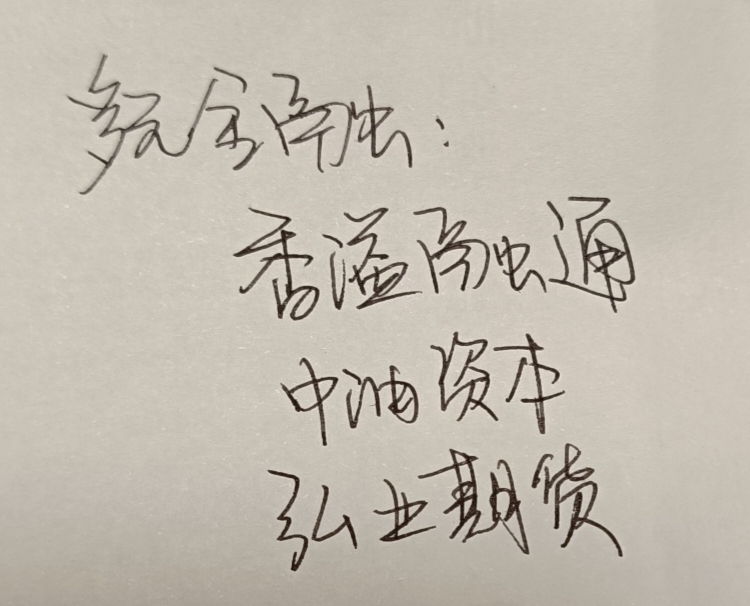 多元金融:
香溢融通
中油资本
弘业期货